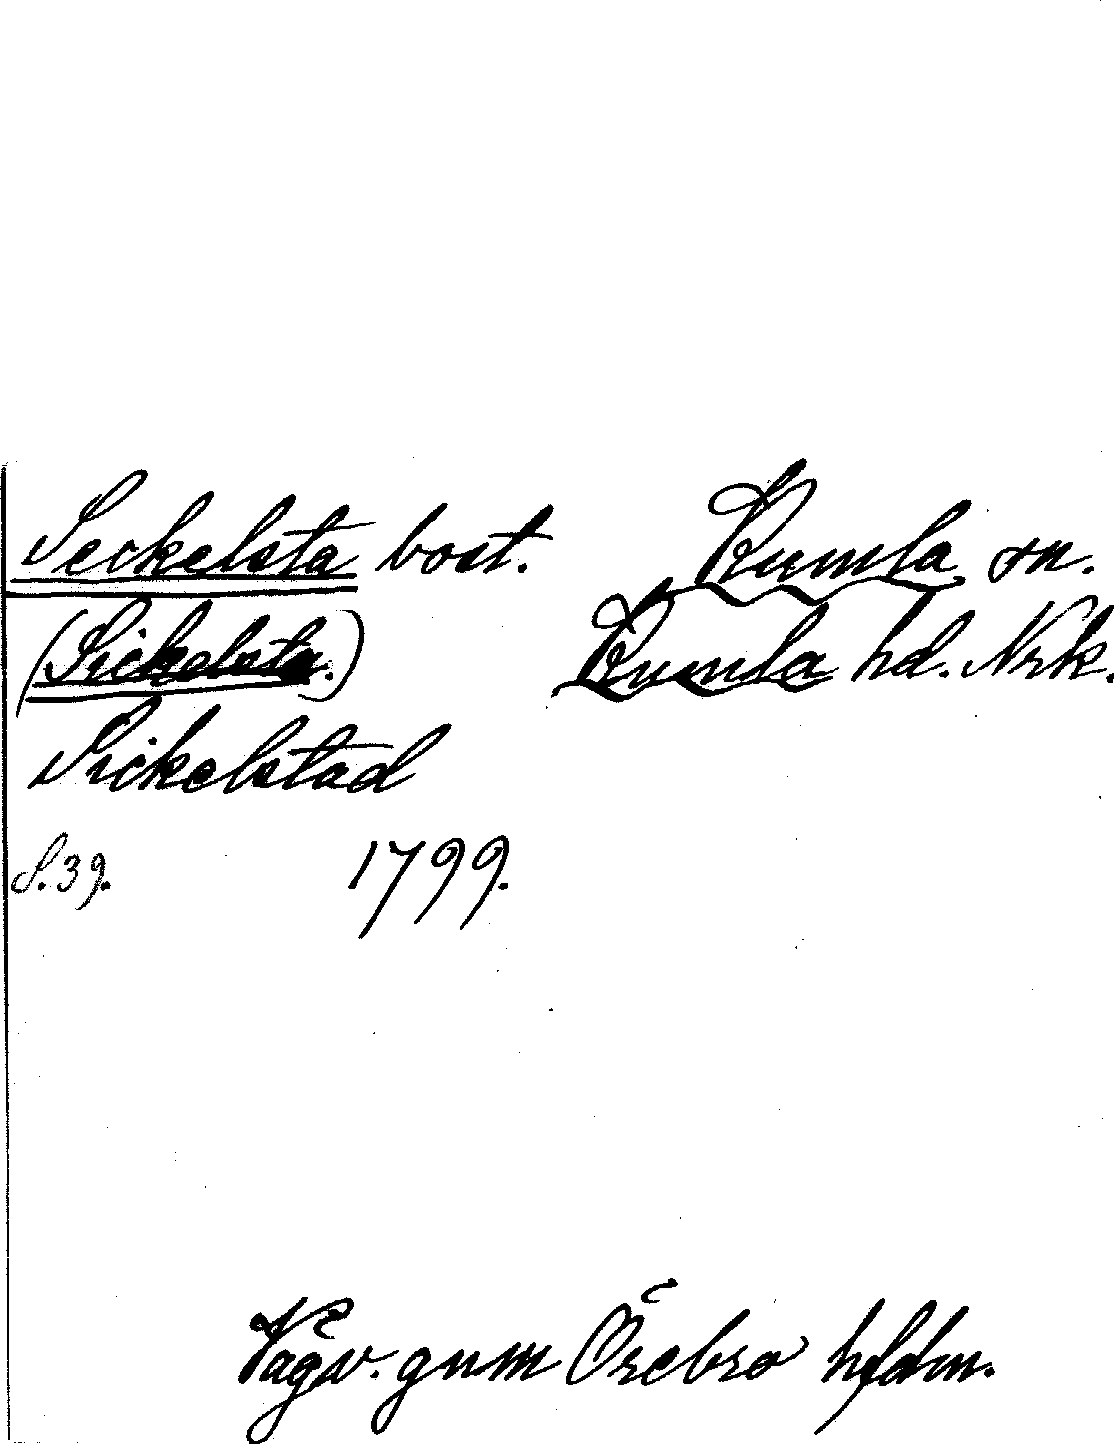 Seckelsta bost. Kumla sn.
(Sickelsta.) Kumla hd. Nrk.
Sickelstad
S. 39. 1799.
Vägv. gnm Örebro hfdm.